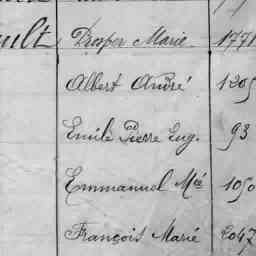 ult Prosper Marie 1771
Albert André 1205
Emile Pierre Eug. 93
Emmanuel Mie 1050
François Marie 2047